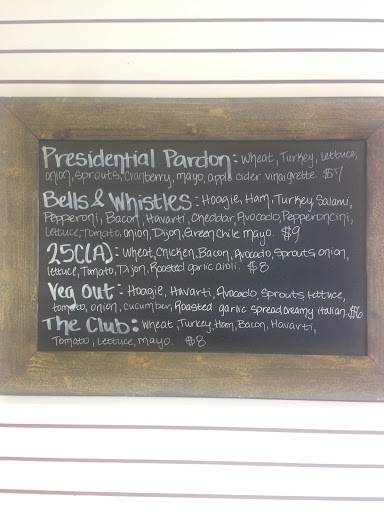 Presidential Pardon: Wheat, Turkey, Lettuce,
onion, sprouts, cranberry, mayo, apple cider vinaigrette. $7
Bells & Whistles: Hoagie, Ham, Turkey, Salami,
Pepperoni, Bacon, Havarti, Cheddar, Avocado, Pepperoncini,
Lettuce, Tomato, onion, Dijon, Green Chile mayo. $9
25C(A): Wheat, Chicken, Bacon, Avocado, Sprouts, onion,
lettuce, Tomato, Dijon, Roasted garlic aioli. $8
Veg Out: Hoagie, Havarti, Avocado, Sprouts, lettuce,
tomato, onion, cucumber, Roasted garlic spread, creamy italian. $6
The Club: Wheat, Turkey, Ham, Bacon, Havarti,
Tomato, Lettuce, mayo. $8